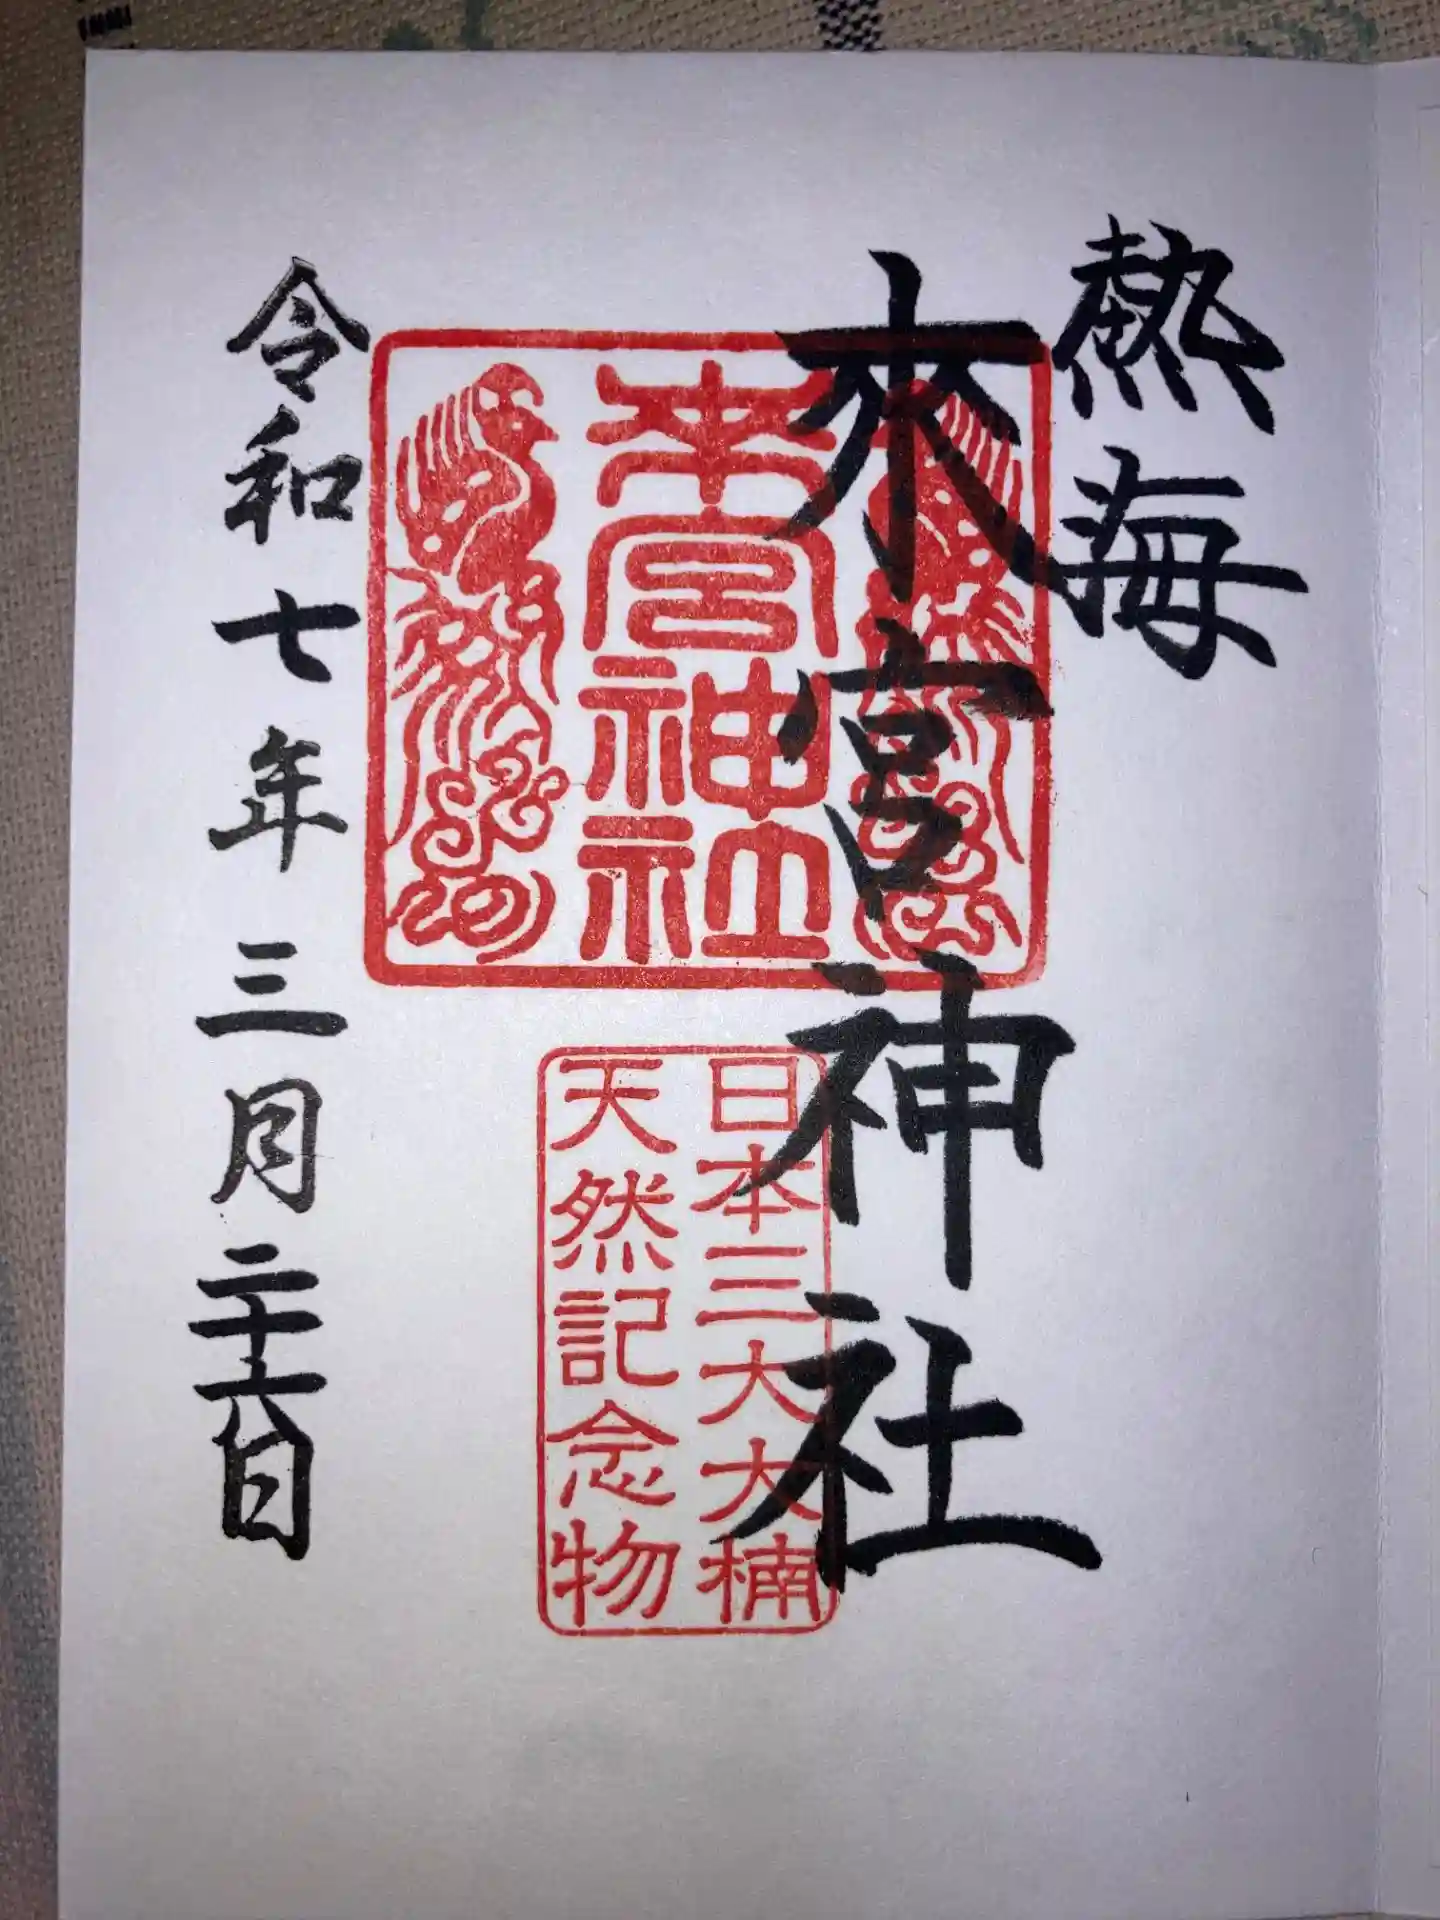 熱海
來宮神社
來宮神社
日本三大大楠
天然記念物
令和七年三月二十六日